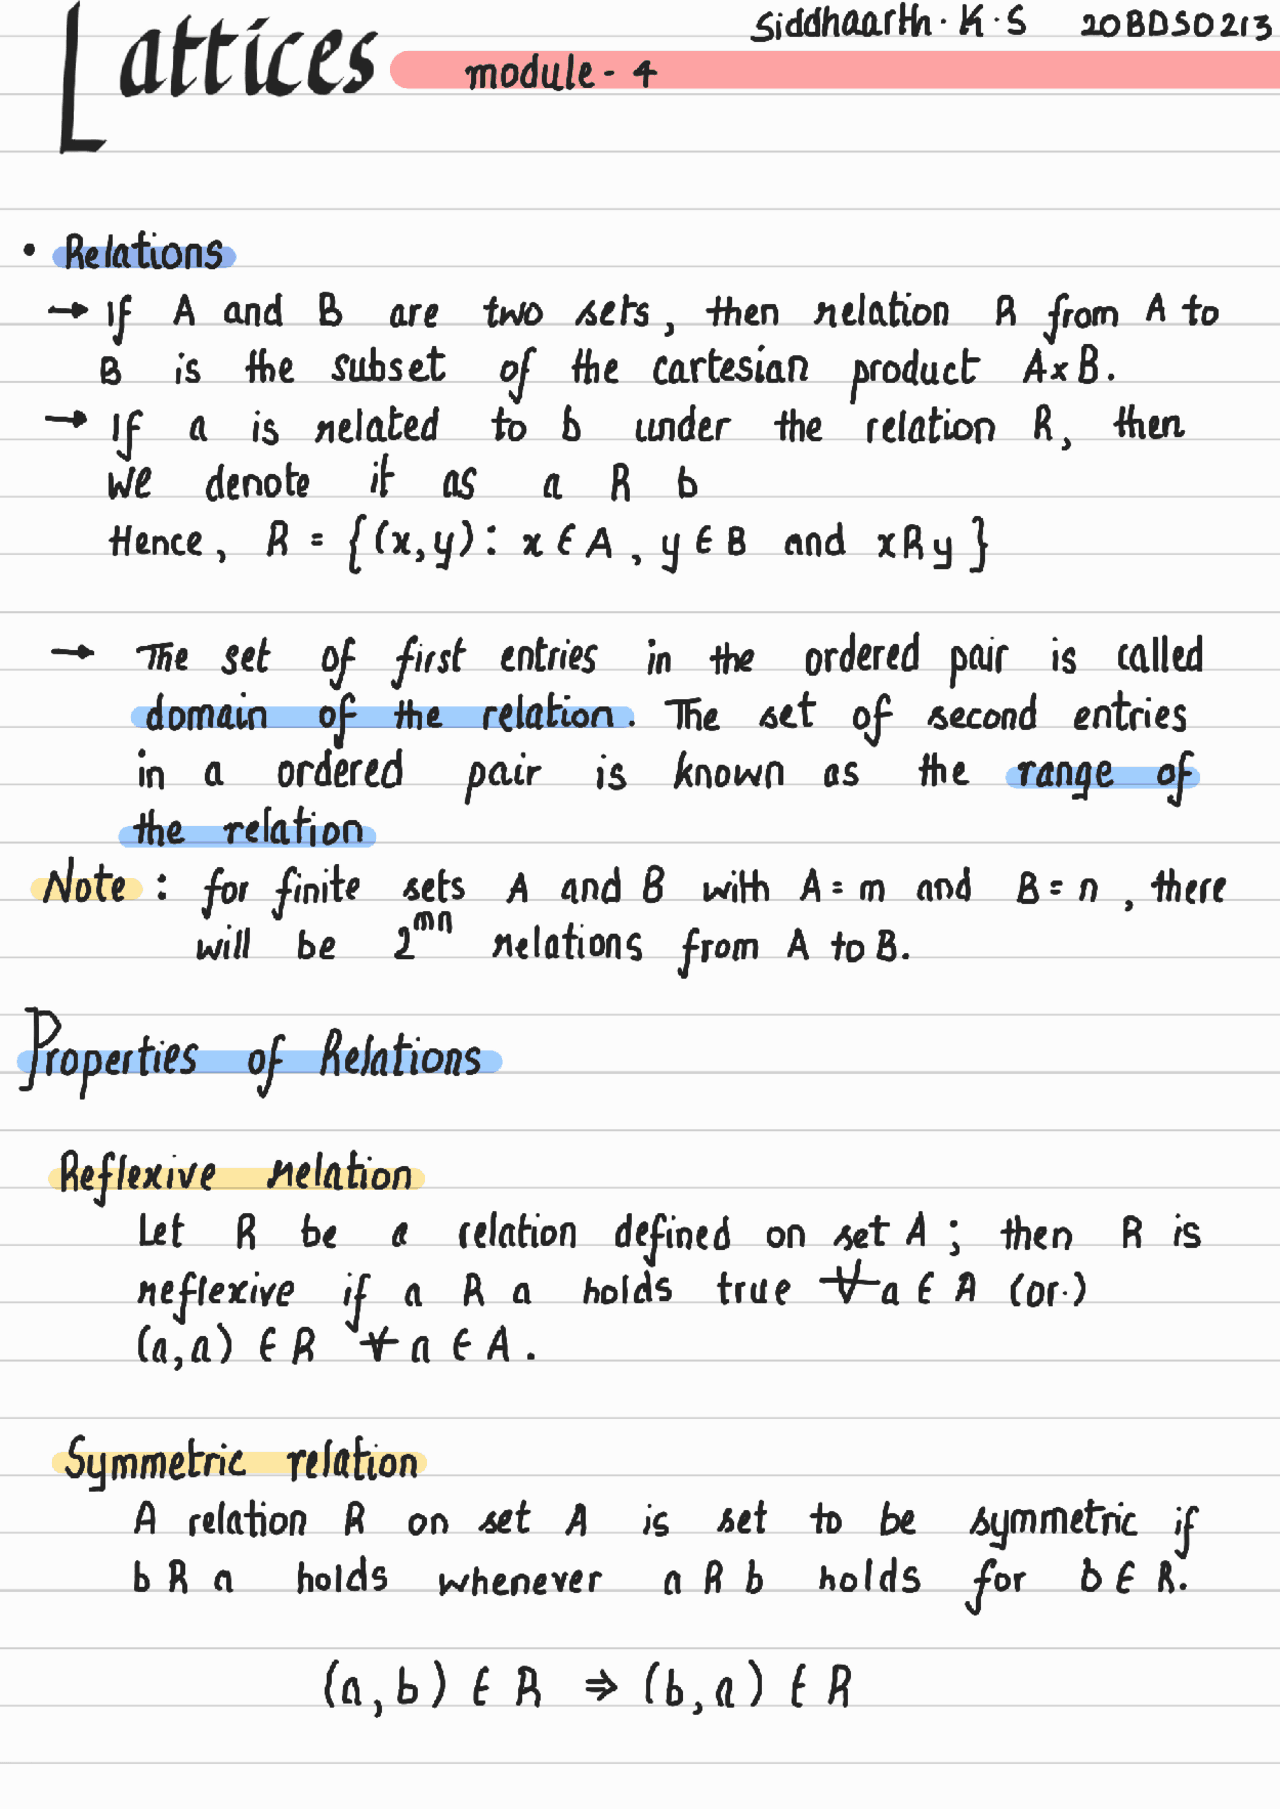 Lattices
Siddhaarth.K.S 20BDS0213
module - 4
• Relations
→ If A and B are two sets, then relation R from A to
B is the subset of the cartesian product A×B.
→ If a is related to b under the relation R, then
we denote it as a R b
Hence, R = {(x,y): x ∈ A, y ∈ B and xRy}
→ The set of first entries in the ordered pair is called
domain of the relation. The set of second entries
in a ordered pair is known as the range of
the relation
Note : for finite sets A and B with A = m and B = n, there
will be 2^mn relations from A to B.
Properties of Relations
Reflexive relation
Let R be a relation defined on set A; then R is
reflexive if a R a holds true ∀ a ∈ A (or.)
(a,a) ∈ R ∀ a ∈ A.
Symmetric relation
A relation R on set A is set to be symmetric if
b R a holds whenever a R b holds for b ∈ R.
(a,b) ∈ R ⇒ (b,a) ∈ R